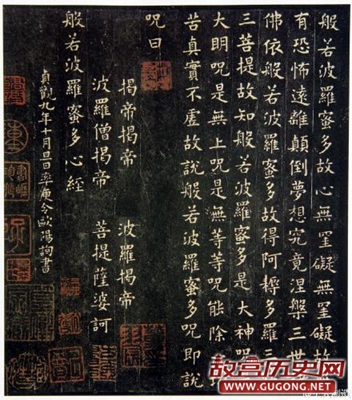 般若波羅蜜多故心無罣礙無罣礙故
有恐怖遠離顛倒夢想究竟涅槃三世
佛依般若波羅蜜多故得阿耨多羅三
三菩提故知般若波羅蜜多是大神呪
大明呪是無上呪是無等等呪能除
苦真實不虛故說般若波羅蜜多呪即說
呪曰
揭帝揭帝 波羅揭帝
波羅僧揭帝 菩提薩婆訶
般若波羅蜜多心經
貞觀九年十月旦日率更令歐陽詢書
故宫历史网
WWW.GUGONG.NET